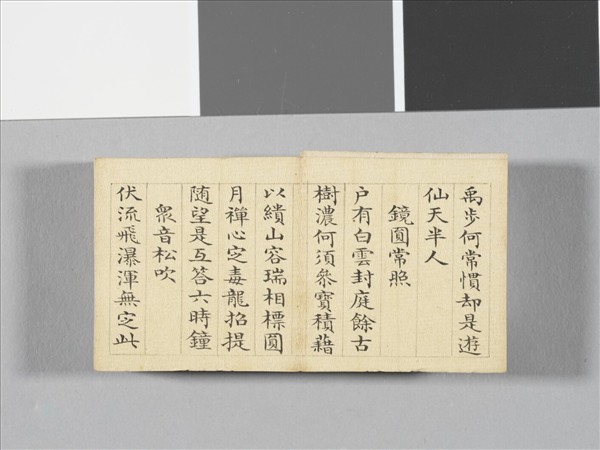 禹步何常慣却是遊
仙天半人
鏡圓常照
户有白雲封庭餘古
樹濃何須參寶積藉
以繢山容瑞相標圓
月禪心定毒龍招提
随望是互答六時鐘
衆音松吹
伏流飛瀑渾無定此